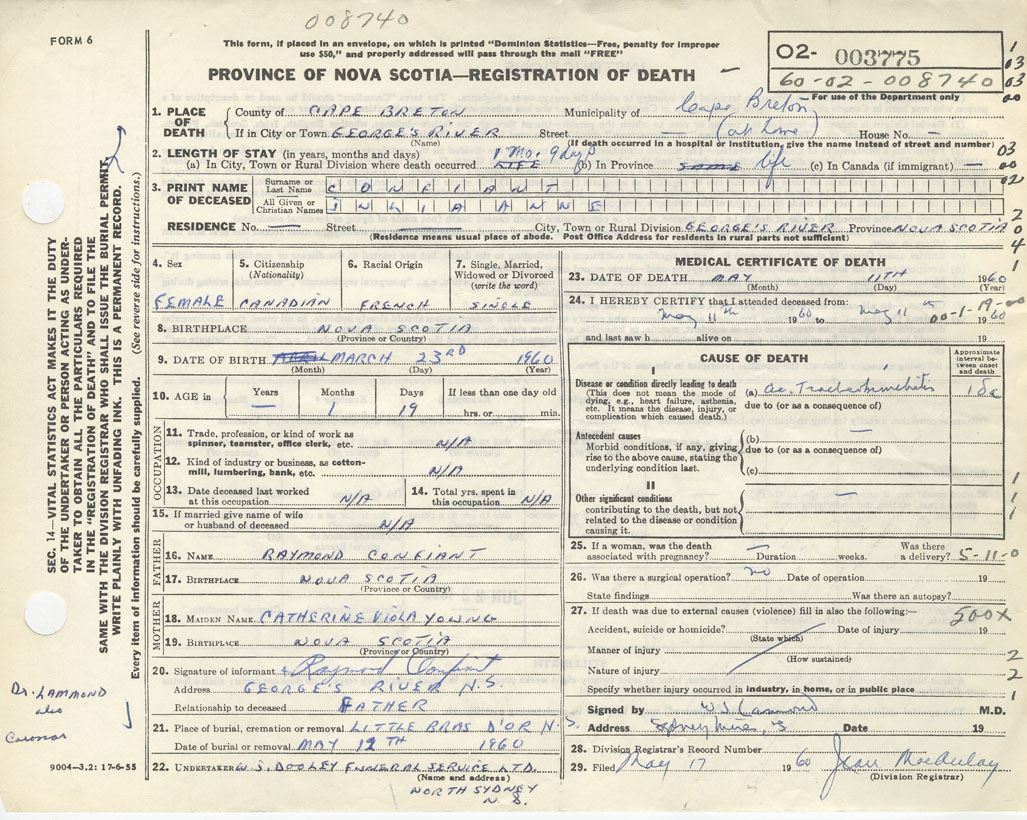 008740
FORM 6
This form, if placed in an envelope, on which is printed "Dominion Statistics—Free, penalty for improper
use $50," and properly addressed will pass through the mail "FREE"
PROVINCE OF NOVA SCOTIA—REGISTRATION OF DEATH
02- 003775
60-02-008740
For use of the Department only
1
03
03
00
SEC. 14—VITAL STATISTICS ACT MAKES IT THE DUTY
OF THE UNDERTAKER OR PERSON ACTING AS UNDER-
TAKER TO OBTAIN ALL THE PARTICULARS REQUIRED
IN THE "REGISTRATION OF DEATH" AND TO FILE THE
SAME WITH THE DIVISION REGISTRAR WHO SHALL ISSUE THE BURIAL PERMIT.
WRITE PLAINLY WITH UNFADING INK. THIS IS A PERMANENT RECORD.
Every item of information should be carefully supplied. (See reverse side for instructions.)
1. PLACE OF DEATH
County of CAPE BRETON Municipality of Cape Breton
If in City or Town GEORGE'S RIVER Street — (at home) House No. —
(Name) (If death occurred in a hospital or institution, give the name instead of street and number)
2. LENGTH OF STAY (in years, months and days)
(a) In City, Town or Rural Division where death occurred LIFE 1 Mo. 9 days (b) In Province same life (c) In Canada (if immigrant) —
03
00
02
3. PRINT NAME OF DECEASED
Surname or Last Name CONFIANT
All Given or Christian Names JULIANNE
RESIDENCE No. — Street — City, Town or Rural Division GEORGE'S RIVER Province NOVA SCOTIA
(Residence means usual place of abode. Post Office Address for residents in rural parts not sufficient)
2
0
4
4. Sex
FEMALE
5. Citizenship (Nationality)
CANADIAN
6. Racial Origin
FRENCH
7. Single, Married, Widowed or Divorced (write the word)
SINGLE
8. BIRTHPLACE NOVA SCOTIA
(Province or Country)
9. DATE OF BIRTH MARCH 23RD 1960
(Month) (Day) (Year)
10. AGE in Years — Months 1 Days 19 If less than one day old hrs. or min.
OCCUPATION
11. Trade, profession, or kind of work as spinner, teamster, office clerk, etc. N/A
12. Kind of industry or business, as cotton-mill, lumbering, bank, etc. N/A
13. Date deceased last worked at this occupation N/A
14. Total yrs. spent in this occupation N/A
15. If married give name of wife or husband of deceased N/A
FATHER
16. NAME RAYMOND CONFIANT
17. BIRTHPLACE NOVA SCOTIA
(Province or Country)
MOTHER
18. MAIDEN NAME CATHERINE VIOLA YOUNG
19. BIRTHPLACE NOVA SCOTIA
(Province or Country)
20. Signature of informant Raymond Confiant
Address GEORGE'S RIVER N.S.
Relationship to deceased FATHER
21. Place of burial, cremation or removal LITTLE BRAS D'OR N.S.
Date of burial or removal MAY 12TH 1960
22. UNDERTAKER W.S. DOOLEY FUNERAL SERVICE LTD.
(Name and address)
NORTH SYDNEY
N.S.
Dr. LAMMOND
also
Coronor
9004—3.2: 17-6-55
MEDICAL CERTIFICATE OF DEATH
23. DATE OF DEATH MAY 11TH 1960
(Month) (Day) (Year)
1
24. I HEREBY CERTIFY that I attended deceased from:
May 11th 1960 to May 11th 1960
00-1-19-00
and last saw h alive on 19
CAUSE OF DEATH
Approximate interval between onset and death
I
Disease or condition directly leading to death
(This does not mean the mode of dying, e.g., heart failure, asthenia, etc. It means the disease, injury, or complication which caused death.)
(a) Ac.
due to (or as a consequence of)
Antecedent causes
Morbid conditions, if any, giving rise to the above cause, stating the underlying condition last.
(b) —
due to (or as a consequence of)
(c)
II
Other significant conditions
contributing to the death, but not related to the disease or condition causing it.
—
1
1
1
25. If a woman, was the death associated with pregnancy? — Duration weeks. Was there a delivery?
5-11-0
26. Was there a surgical operation? no Date of operation 19
State findings Was there an autopsy?
27. If death was due to external causes (violence) fill in also the following:—
500X
Accident, suicide or homicide? Date of injury 19
(State which)
Manner of injury
(How sustained)
Nature of injury
Specify whether injury occurred in industry, in home, or in public place
2
2
1
Signed by W S Lammond M.D.
Address Sydney Mines, NS Date 19
28. Division Registrar's Record Number
29. Filed May 17 1960 Jean MacAulay
(Division Registrar)